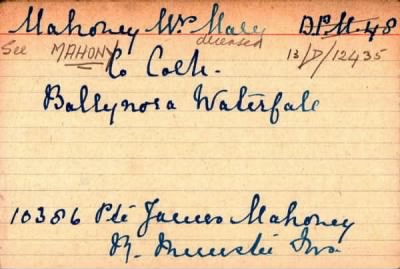 Mahoney Mrs Mary D.P.M.48
deceased
See MAHONY 13/D/12435
Co Cork.
Ballynora Waterfall
10386 Pte James Mahoney
R. Munster Fus